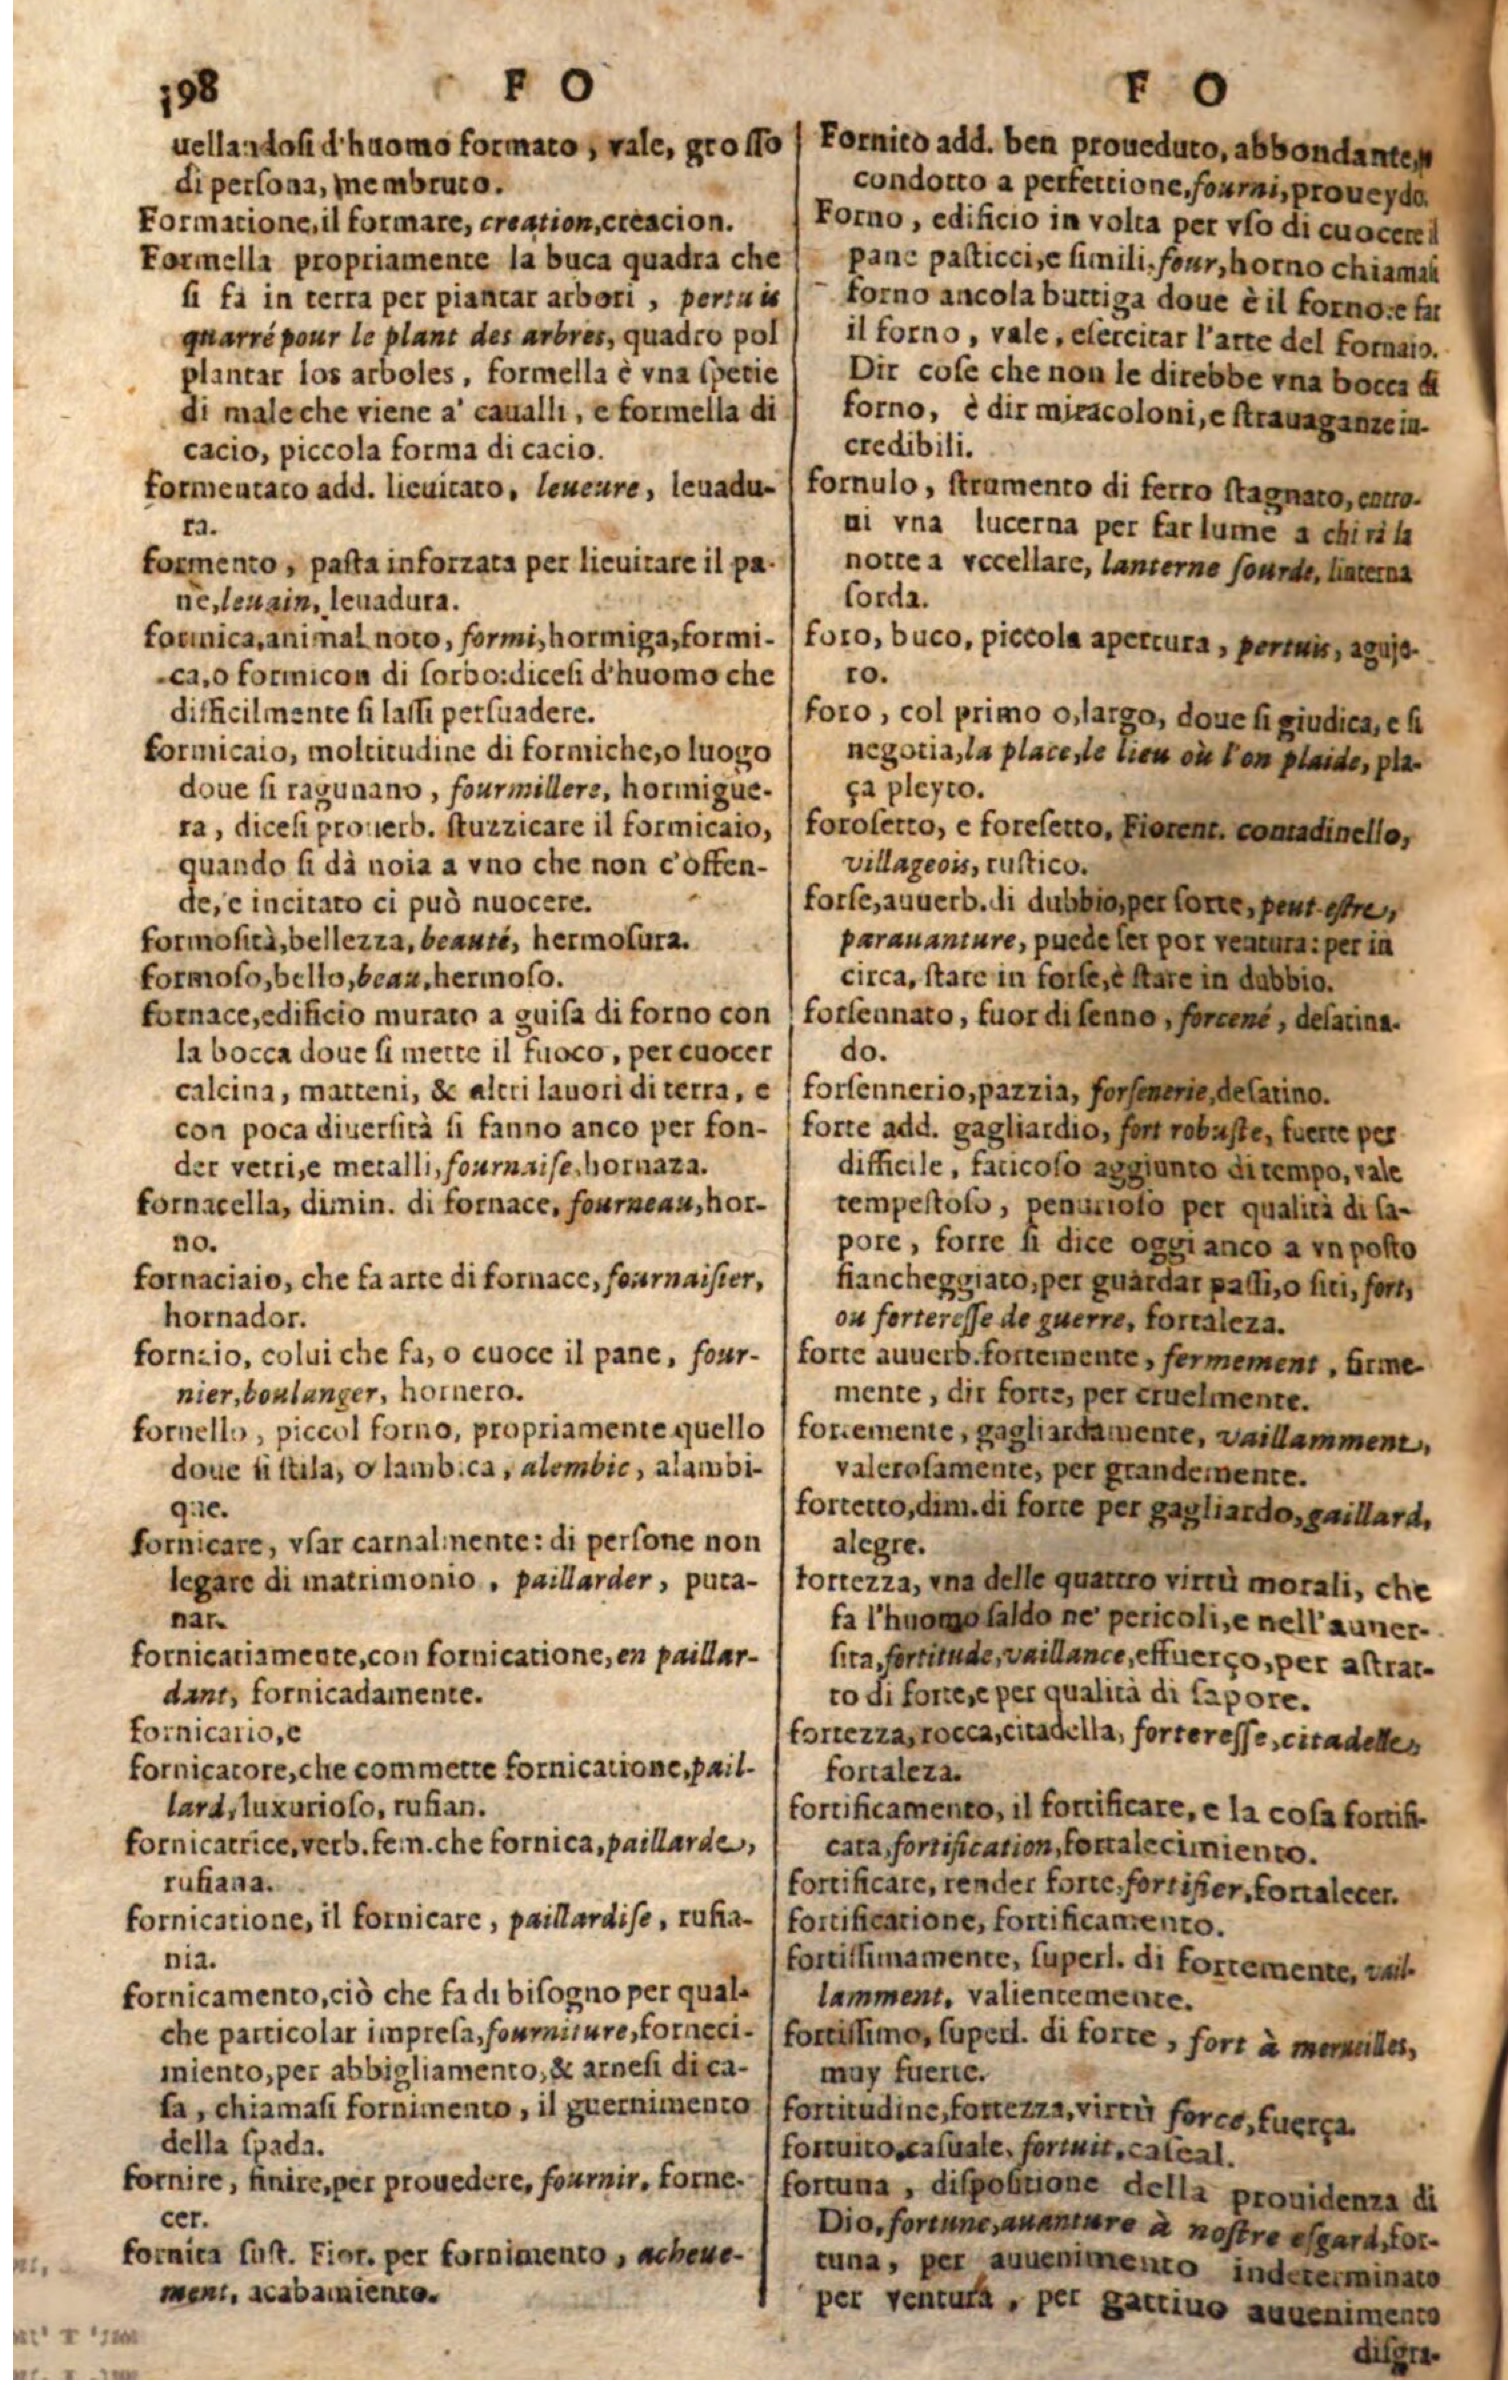 198 F O
uellandosi d'huomo formato, vale, grosso
di persona, membruto.
Formatione, il formare, creation, creacion.
Formella propriamente la buca quadra che
si fa in terra per piantar arbori, pertuis
quarré pour le plant des arbres, quadro pol
plantar los arboles, formella è vna spetie
di male che viene a' caualli, e formella di
cacio, piccola forma di cacio.
formentato add. lieuitato, leueure, leuadu-
ra.
formento, pasta inforzata per lieuitare il pa-
ne, leuain, leuadura.
formica, animal noto, formi, hormiga, formi-
ca, o formicon di sorbo: dicesi d'huomo che
difficilmente si lassi persuadere.
formicaio, moltitudine di formiche, o luogo
doue si ragunano, fourmillere, hormigue-
ra, dicesi prouerb. stuzzicare il formicaio,
quando si dà noia a vno che non c'offen-
de, e incitato ci può nuocere.
formosità, bellezza, beauté, hermosura.
formoso, bello, beau, hermoso.
fornace, edificio murato a guisa di forno con
la bocca doue si mette il fuoco, per cuocer
calcina, matteni, & altri lauori di terra, e
con poca diuersità si fanno anco per fon-
der vetri, e metalli, fournaise, hornaza.
fornacella, dimin. di fornace, fourneau, hor-
no.
fornaciaio, che fa arte di fornace, fournaisier,
hornador.
fornaio, colui che fa, o cuoce il pane, four-
nier, boulanger, hornero.
fornello, piccol forno, propriamente quello
doue si stila, o lambica, alembic, alambi-
que.
fornicare, vsar carnalmente: di persone non
legare di matrimonio, paillarder, puta-
nar.
fornicatiamente, con fornicatione, en paillar-
dant, fornicadamente.
fornicario, e
fornicatore, che commette fornicatione, pail-
lard, luxurioso, rufian.
fornicatrice, verb. fem. che fornica, paillarde,
rufiana.
fornicatione, il fornicare, paillardise, rufia-
nia.
fornicamento, ciò che fa di bisogno per qual-
che particolar impresa, fourniture, forneci-
miento, per abbigliamento, & arnesi di ca-
sa, chiamasi fornimento, il guernimento
della spada.
fornire, finire, per prouedere, fournir, forne-
cer.
fornita sust. Fior. per fornimento, acheue-
ment, acabamiento.
F O
Fornito add. ben proueduto, abbondante,
condotto a perfettione, fourni, proueydo.
Forno, edificio in volta per vso di cuocere il
pane pasticci, e simili, four, horno chiamasi
forno ancola buttiga doue è il forno: e far
il forno, vale, esercitar l'arte del fornaio.
Dir cose che non le direbbe vna bocca di
forno, è dir miracoloni, e strauaganze in-
credibili.
fornulo, strumento di ferro stagnato, entro-
ui vna lucerna per far lume a chi và la
notte a vccellare, lanterne sourde, linterna
sorda.
foro, buco, piccola apertura, pertuis, aguje-
ro.
foro, col primo o, largo, doue si giudica, e si
negotia, la place, le lieu où l'on plaide, pla-
ça pleyto.
forosetto, e foresetto, Fiorent. contadinello,
villageois, rustico.
forse, auuerb. di dubbio, per sorte, peut-estre,
parauanture, puede ser por ventura: per in
circa, stare in forse, è stare in dubbio.
forsennato, fuor di senno, forcené, desatina-
do.
forsennerio, pazzia, forsenerie, desatino.
forte add. gagliardio, fort robuste, fuerte per
difficile, faticoso aggiunto di tempo, vale
tempestoso, penurioso per qualità di sa-
pore, forre si dice oggi anco a vn posto
fiancheggiato, per guardar passi, o siti, fort,
ou forteresse de guerre, fortaleza.
forte auuerb. fortemente, fermement, firme-
mente, dir forte, per cruelmente.
fortemente, gagliardamente, vaillamment,
valerosamente, per grandemente.
fortetto, dim. di forte per gagliardo, gaillard,
alegre.
fortezza, vna delle quattro virtù morali, che
fa l'huomo saldo ne' pericoli, e nell'auuer-
sita, fortitude, vaillance, effuerço, per astrat-
to di forte, e per qualità di sapore.
fortezza, rocca, citadella, forteresse, citadelle,
fortaleza.
fortificamento, il fortificare, e la cosa fortifi-
cata, fortification, fortalecimiento.
fortificare, render forte, fortifier, fortalecer.
fortificatione, fortificamento.
fortissimamente, superl. di fortemente, vail-
lamment, valientemente.
fortissimo, superl. di forte, fort à merueilles,
muy fuerte.
fortitudine, fortezza, virtù force, fuerça.
fortuito, casuale, fortuit, caseal.
fortuna, dispositione della prouidenza di
Dio, fortune, auanture à nostre esgard, for-
tuna, per auuenimento indeterminato
per ventura, per gattiuo auuenimento
disgra-